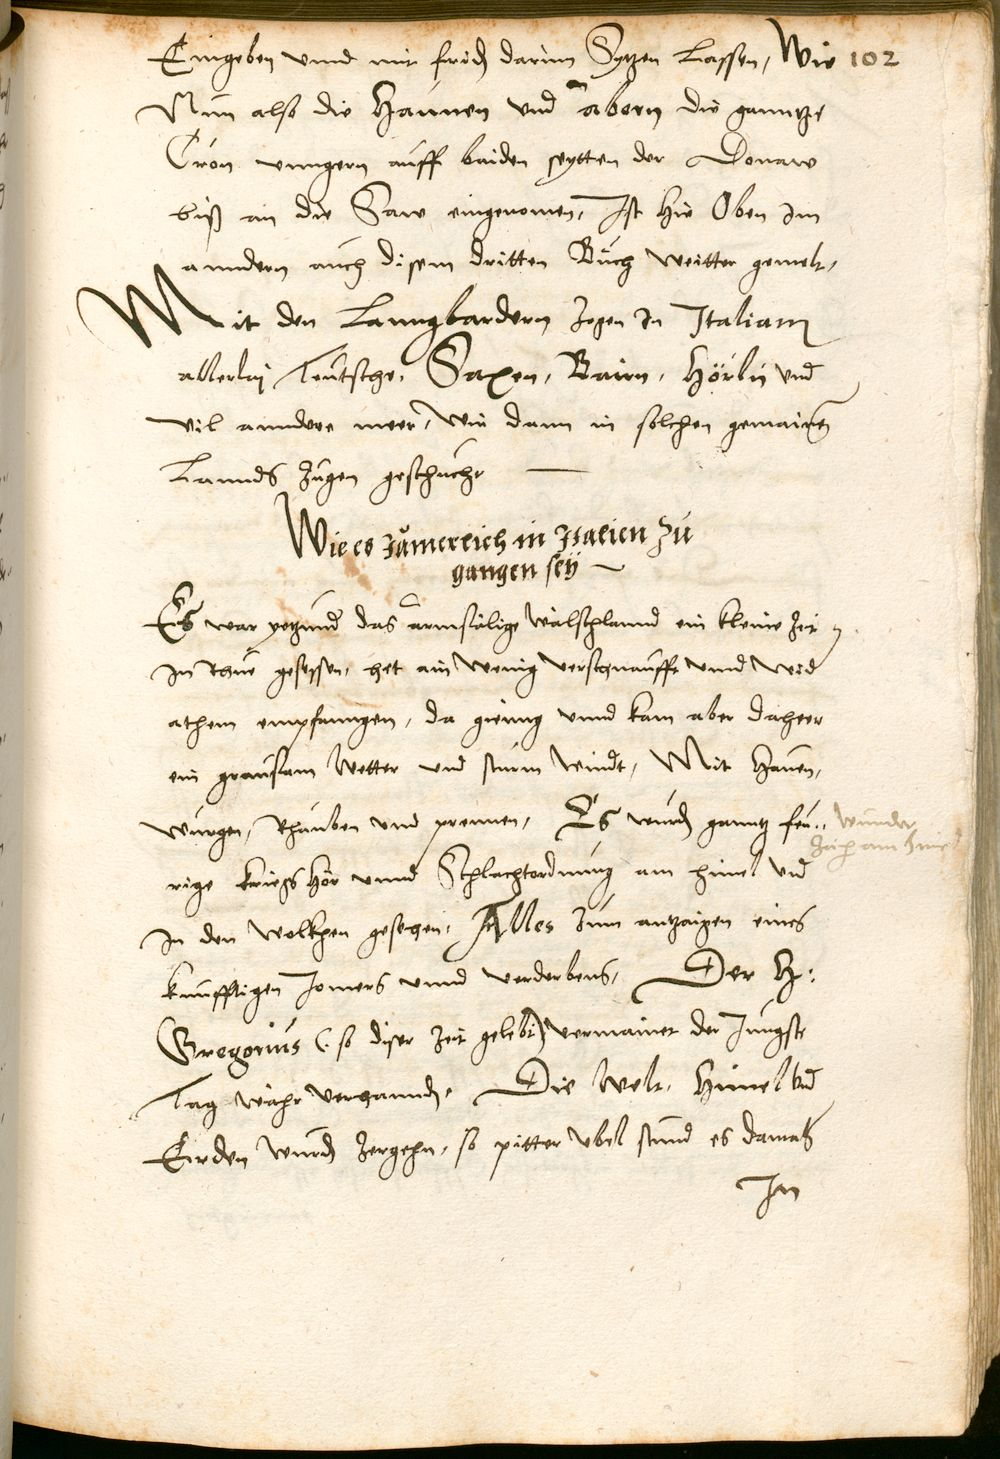 Eingeben unnd mit frid darinn Sytzen Lassen, Wie 102
Nun also die Haunen und abern die ganntze
Cron unngern auff baiden seytten der Donaw
biß an die Saw eingenomen, Ist hie Oben Im
anndern auch disem dritten Buch weitter gemelt,
Mit den Lanngbardern zogen In Italiam
allerlaj Teutsche, Saxen, Bairn, Hörlu und
vil anndere meer, Wie dann in solchen gemainen
Lannds zugen geschicht
Wie es Jämerlich in Italien zu
gangen sey
Es war yetzund das armsälige Wälschlannd ein kleine Zeit
In Rhue gesessen, het ain Wenig verschnaufft unnd Wid
athem empfanngen, da gieng unnd kam aber daheer
ein grausam Wetter und sturm Windt, Mit Hauen,
Würgen, Rhauben und prennen, Es wurd ganntz feu-
wunder
Zaich am himel
rige kriegs Hör unnd Schlachtordnung am himel und
In den Wolkhen gesehen, Alles zum antzaigen eines
kunfftigen Jomers unnd verderbens, Der H:
Gregorius (so diser Zeit gelebt) vermainet der Jungste
Tag wahr verhannd, Die Welt, Himel und
Erden wurd zergehn, so pitter ubel stund es damals
In